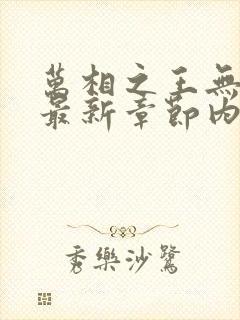 萬相之王無
最新章節內
秀樂沙鷺